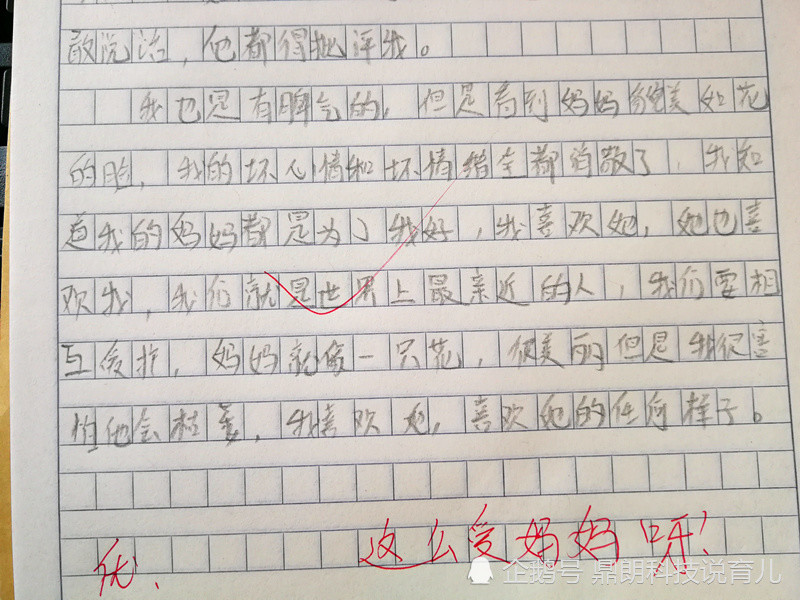 敢说话，他都得批评我。
我也是有脾气的，但是看到妈妈绝美如花
的脸，我的坏心情和坏情绪全都消散了，我知
道我的妈妈都是为了我好，我喜欢她，她也喜
欢我，我们就是世界上最亲近的人，我们要相
互爱护，妈妈就像一只花，很美丽但是我很害
怕他会枯萎，我喜欢她，喜欢她的任何样子。
优、 这么爱妈妈呀！
企鹅号 鼎朗科技说育儿